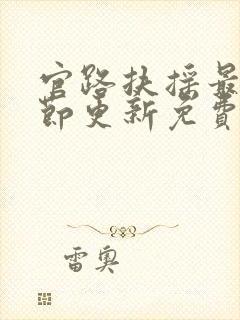 官路扶摇最
节更新免费
雷奥